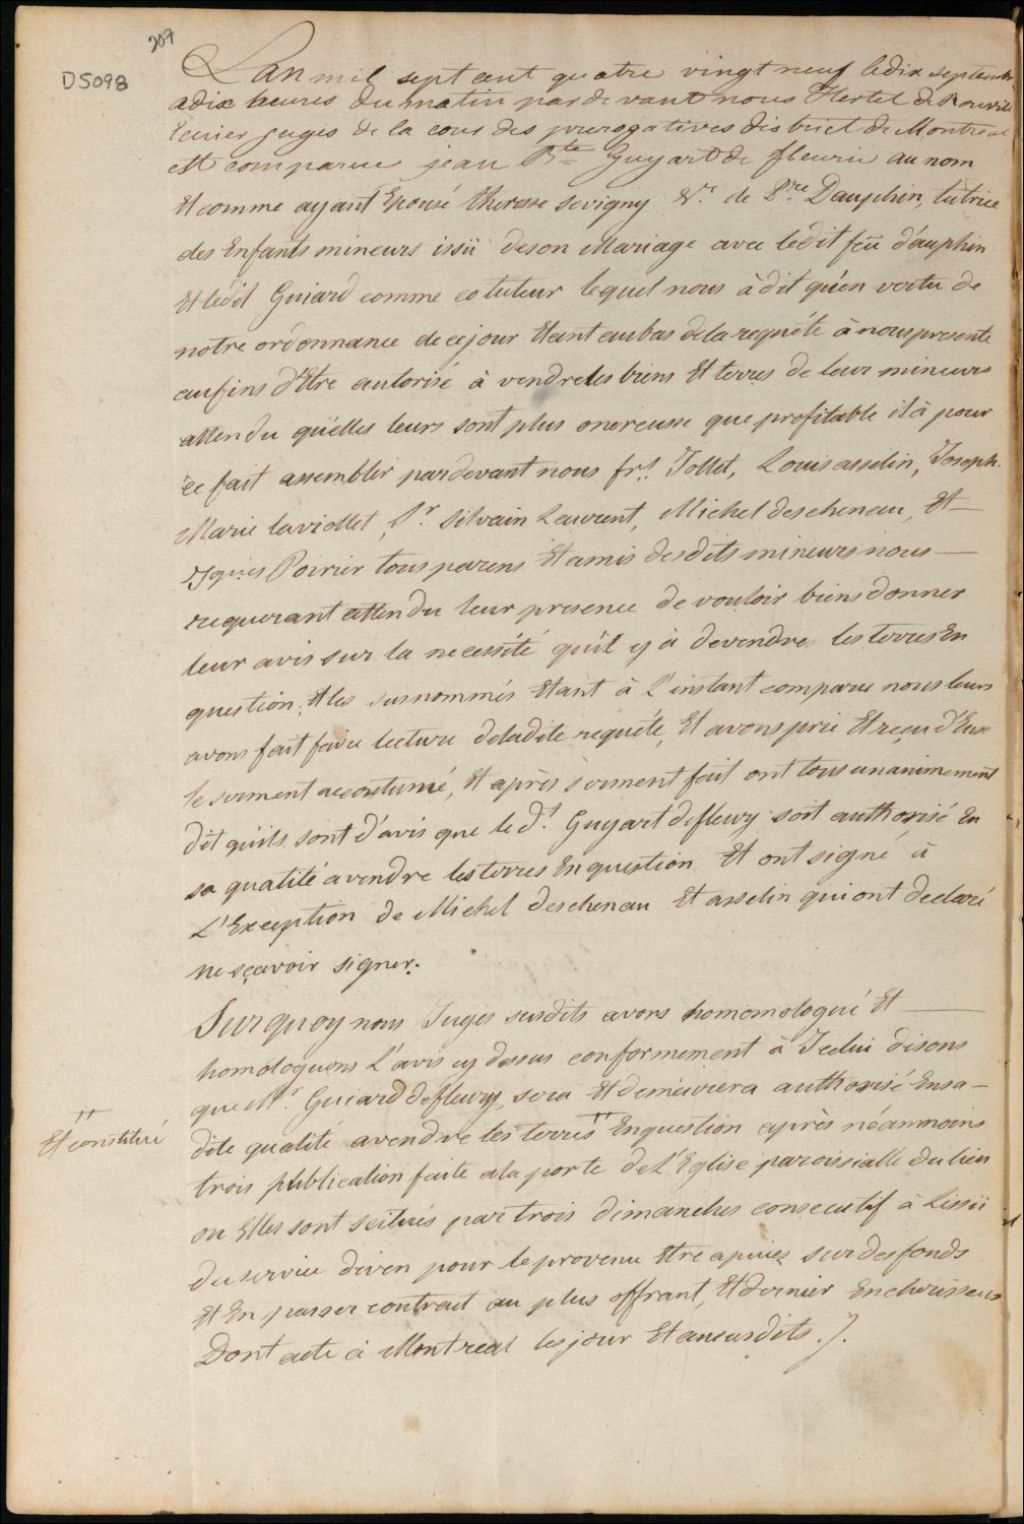 207
D5098
Lan mil sept cent quatre vingt neuf le dix septembr
a dix heures du matin par devant nous Hertel de Rouvil
Ecuier juges de la cour des prerogatives district de Montreal
est comparue jean Bte Guyart de fleurie au nom
Et comme ayant Epousé therese sevigny Ve de Pre Dauphin, tutrice
des Enfants mineurs issü de son Mariage avec ledit feü d'auphin
Et ledit Guiard comme cotuteur lequel nous à dit qu'en vertu de
notre ordonnance de cejour Etant au bas de la requéte à nous presenté
aufins d'Etre autorisé à vendre les biens Et terres de leur mineurs
attendu qu'elles leurs sont plus onereuse que profitable il à pour
ce fait assembler pardevant nous frs Tollet, Louis asselin, Joseph
Marie laviollet, Sr Silvain Laurent, Michel deschenau, Et
Jques Poirier tous parens Et amis desdits mineurs nous
requerant attendu leur presence de vouloir biens donner
leur avis sur la necessité qu'il y à de vendre les terres En
question, Et les susnommés Etant à l'instant comparu nous leurs
avons fait faire lecture deladite requéte, Et avons prie Et reçu d'Eux
le serment accoutumé, Et après serment fait ont tous unanimement
dit quiils sont d'avis que le dt Guyart defleury soit authorisé En
sa qualité a vendre les terres En question Et ont signé à
L'Exception de Michel deschenau Et asselin qui ont declaré
ne sçavoir signer.
Sur quoy nous Juges susdits avons homomologué Et
homologuons L'avis cy dessus conformement à Icelui disons
que Mr Guiard defleury sera Et demeurera authorisé Ensa
dite qualité a vendre les terres Enquestion après néanmoins
Et constitué
trois publication faite a la porte de L'Eglise paroissialle du lieu
ou Elles sont scitués par trois dimanches consecutif à Lissü
du service diven pour le provenu Etre apuiez sur des fonds
Et En passer contrat au plus offrant, Et dernier Encherisseur
Dont acte à Montreal les jour Et an susdits ./.